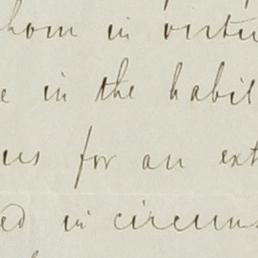 whom in virtu
e in the habit
us for an ext
ed in circums